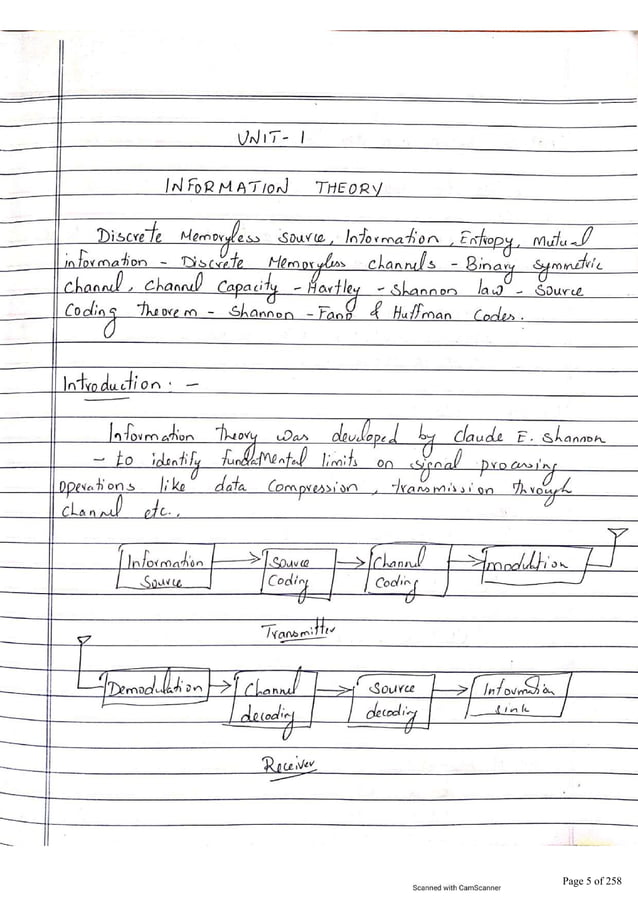 UNIT- 1
INFORMATION THEORY
Discrete Memoryless source, Information, Entropy, Mutual
information - Discrete Memoryless channels - Binary symmetric
channel, Channel Capacity - Hartley - Shannon law - Source
Coding Theorem - Shannon - Fano & Huffman Codes.
Introduction: -
Information Theory was developed by Claude E. Shannon
- to identify fundamental limits on signal processing
operations like data compression, transmission through
channel etc.,
Information Source
Source Coding
Channel Coding
modulation
Transmitter
Demodulation
Channel decoding
Source decoding
Information sink
Receiver
Scanned with CamScanner
Page 5 of 258